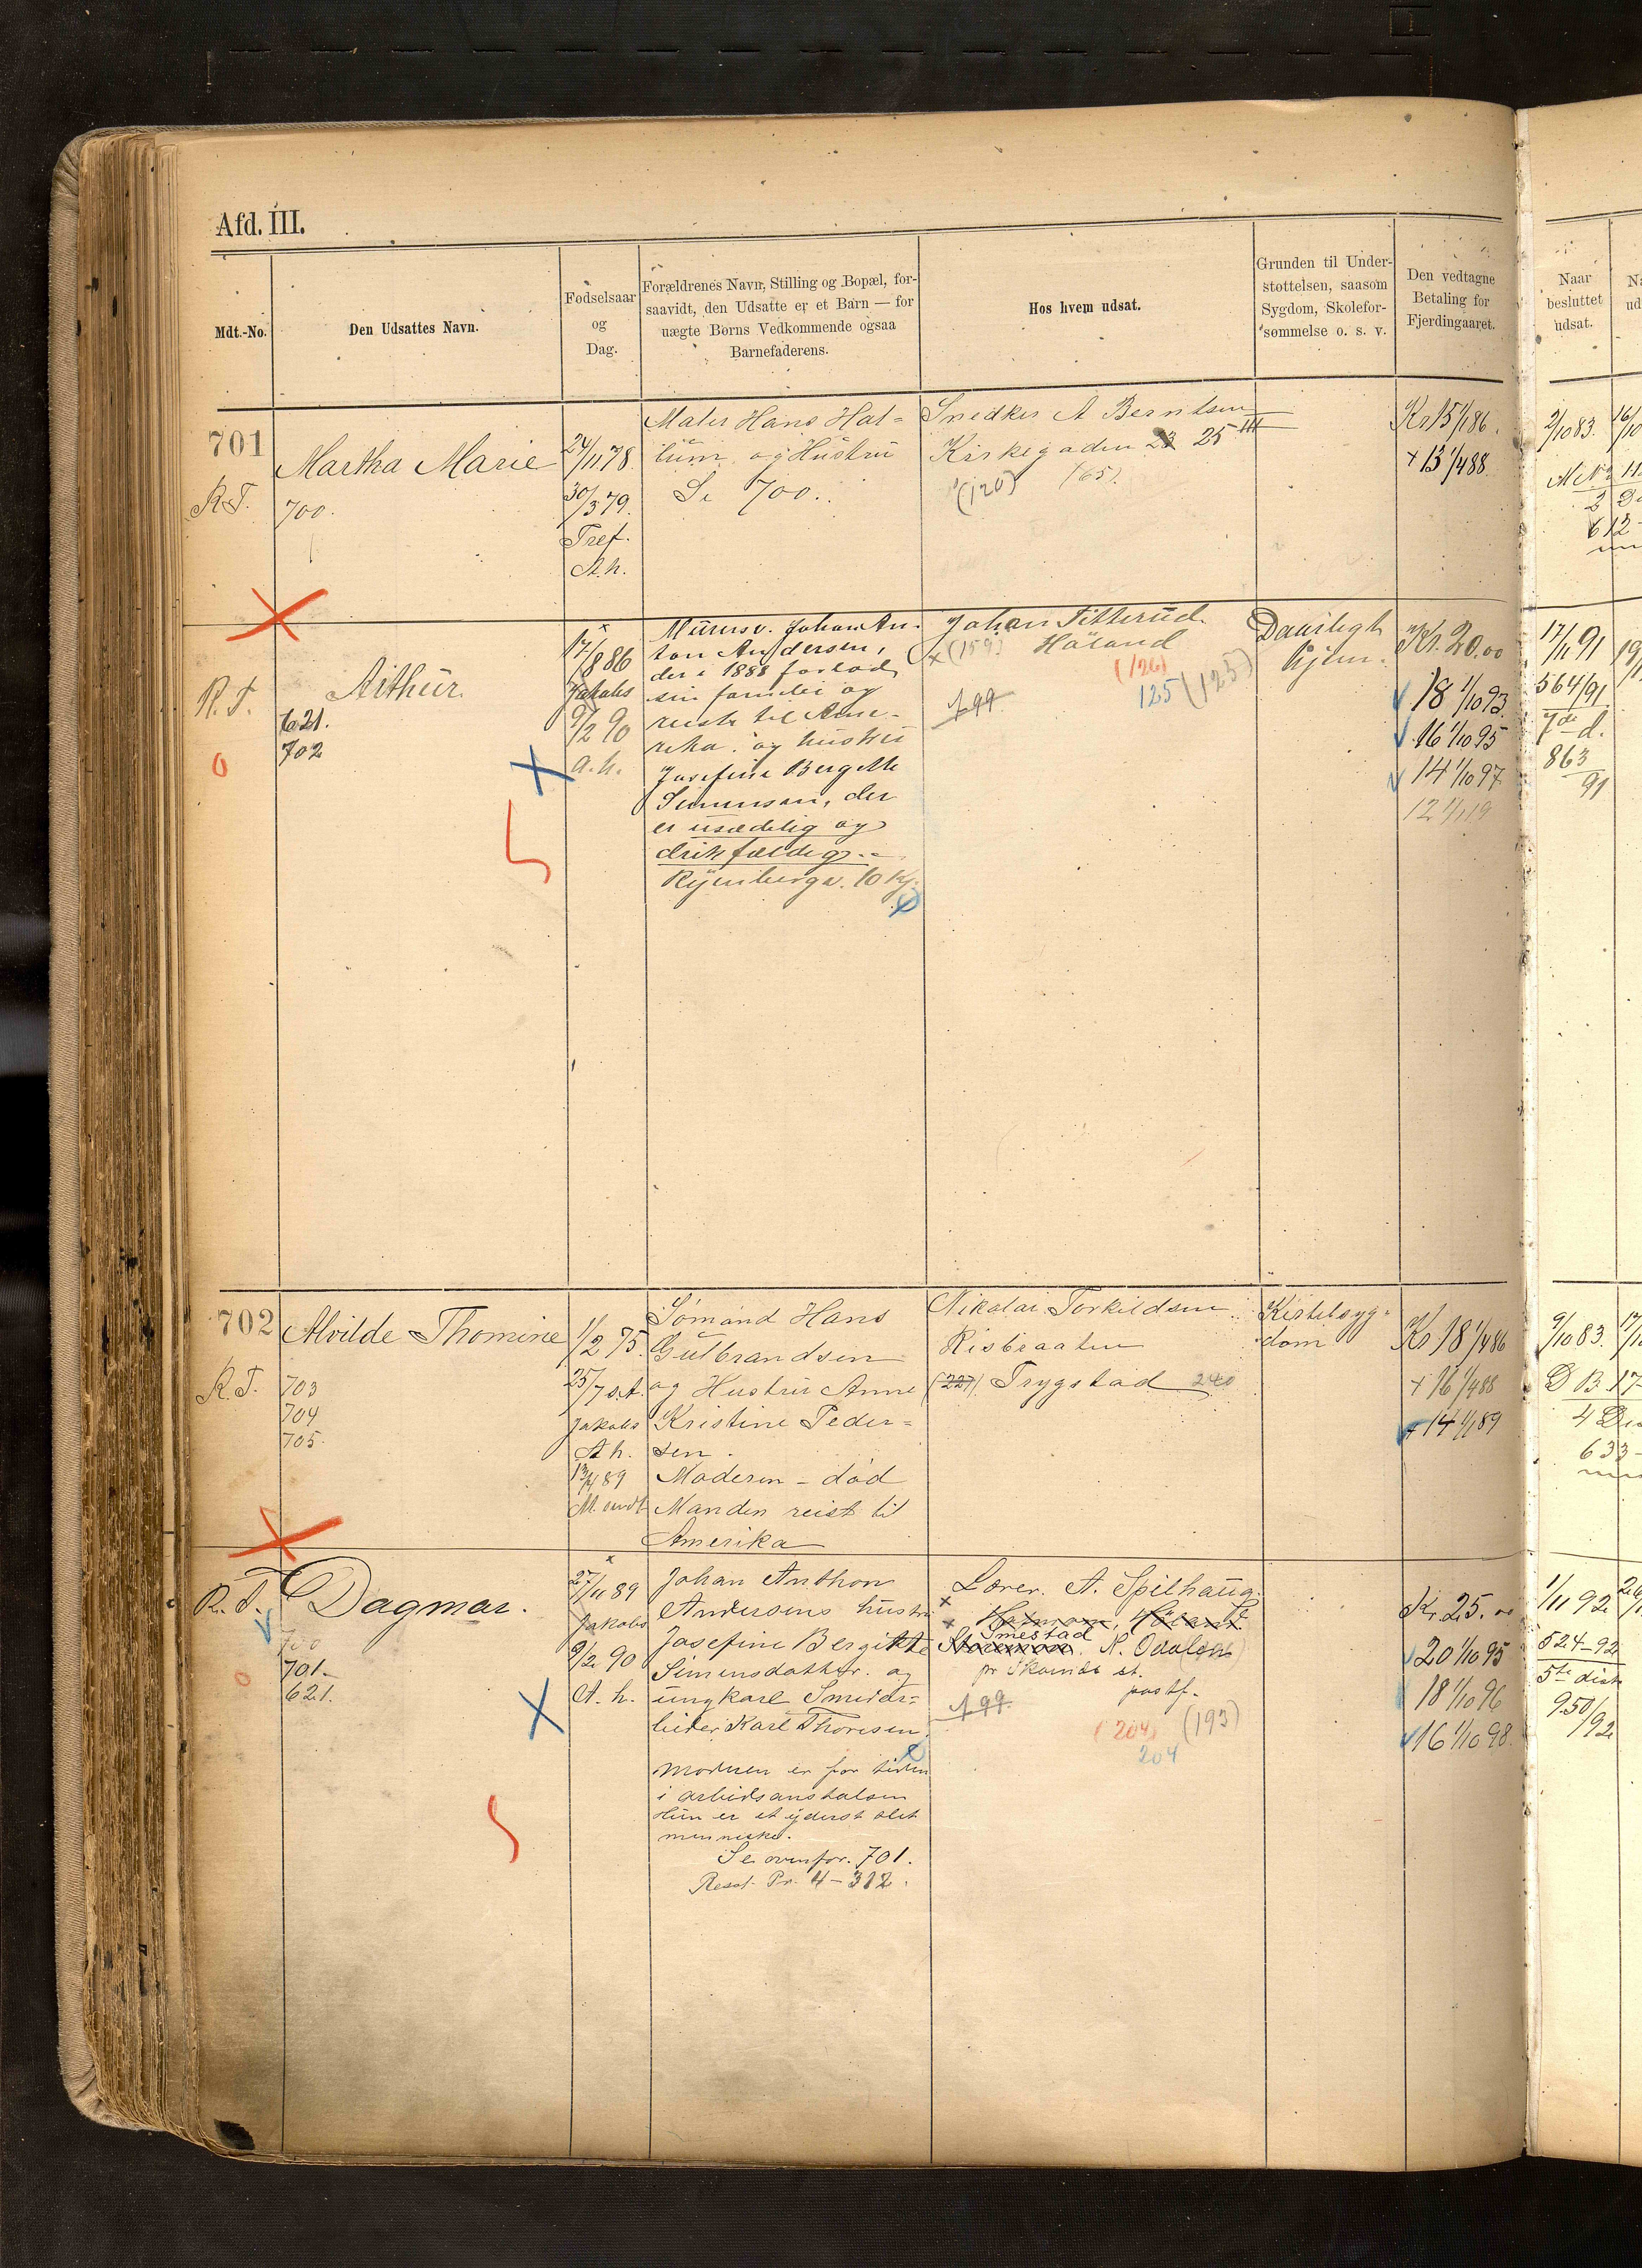 Afd. III.
Mdt.-No.
Den Udsattes Navn.
Fødselsaar
og
Dag.
Forældrenes Navn, Stilling og Bopæl, for-
saavidt, den Udsatte er et Barn — for
uægte Børns Vedkommende ogsaa
Barnefaderens.
Hos hvem udsat.
Grunden til Under-
støttelsen, saasom
Sygdom, Skolefor-
sømmelse o. s. v.
Den vedtagne
Betaling for
Fjerdingaaret.
Naar
besluttet
udsat.
701
R.T.
Martha Marie
700.
24/11 78
30/3 79.
Tref.
A.h.
Maler Hans Hal-
lum og Hustru
Se 700.
Snedker A Berntsen
Kirkegaden 23 25 III
(120) (65)
Kr 15 1/1 86.
+ 13 1/4 88
2/10 83.
R.T.
Arthur
621.
702
0
17/8 86
Jakobs
9/2 90
a.h.
Murersv. Johan An-
ton Andersen,
der i 1888 forlod
sin familie og
reiste til Ame-
rika. og hustru
Josefine Bergitte
Simensen, der
er usædelig og
drikfældig.
10
Johan Fitterud
x (159) Høland
(126)
125 (125)
1/4 99
Daarligt
hjem.
Kr. 20.00
18 1/10 93.
16 1/10 95
14 1/10 97
17/11 91
564/91
7de d.
863
91
702
R.T.
Alvilde Thomine
703
704
705.
1/2 75.
25/7 s.A.
Jakobs
A h.
13/4 89
Sømand Hans
Gulbrandsen
og Hustru Anne
Kristine Peder-
sen.
Moderen - død
Manden reist til
Amerika
Nikolai Torkildsen
Risbraaten
(227) Trygstad 240
Kirtelsyg-
dom
Kr 18 1/4 86
+ 16 1/4 88
+ 14 1/1 89
9/10 83.
633-
R.T.
Dagmar.
700
701.
621.
0
27/11 89
Jakobs
9/2 90
A. h.
Johan Anthon
Andersens hustru
Josefine Bergitte
Simensdatter og
ungkarl Smidar-
beider Karl Thoresen
Moderen er for tiden
i arbeidsanstalten
Hun er et yderst slet
menneske.
Se ovenfor. 701.
Resol. Pr. 4 - 312.
Lærer. A. Spilhaug.
Smestad
N. Odalen
pr Skarnes st.
postf.
1/4 99
(204) (193)
204
Kr. 25.00
20 1/10 95
18 1/10 96
16 1/10 98.
1/11 92
524-92
5te distr
950/92